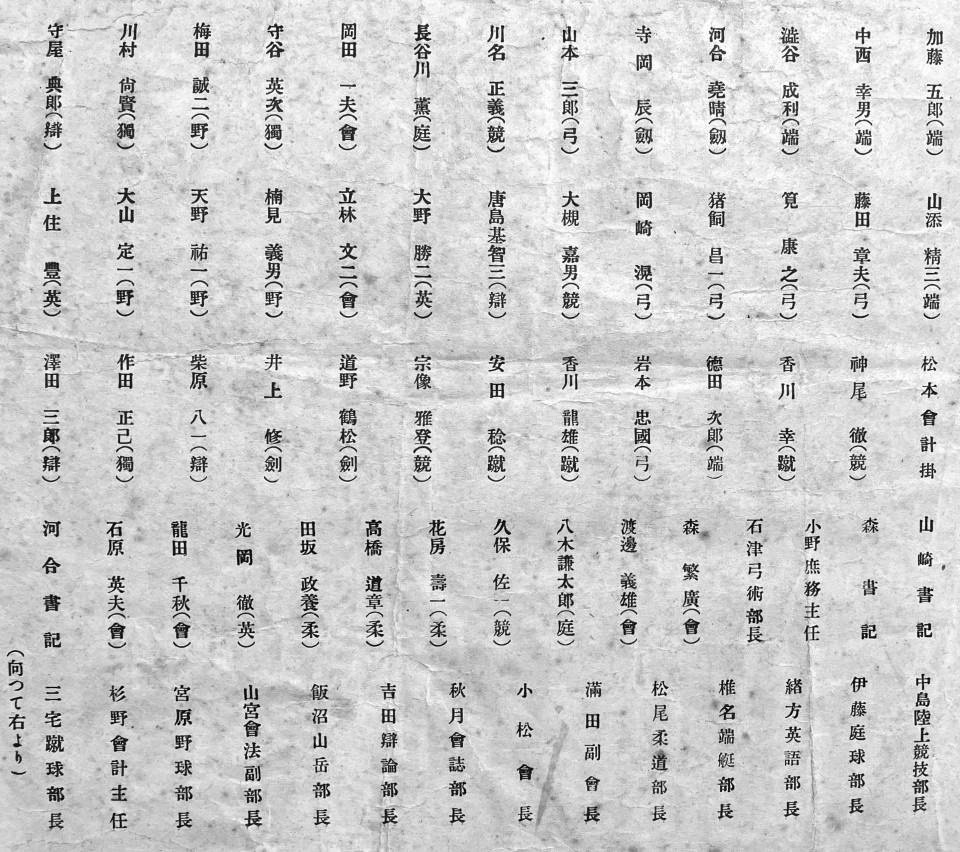 加藤 五郎(端)
中西 幸男(端)
澁谷 成利(端)
河合 堯晴(劒)
寺岡 辰(劒)
山本 三郎(弓)
川名 正義(競)
長谷川 薫(庭)
岡田 一夫(會)
守谷 英次(獨)
梅田 誠二(野)
川村 尙賢(獨)
守屋 典郎(辯)
山添 精三(端)
藤田 章夫(弓)
筧 康之(弓)
猪飼 昌一(弓)
岡崎 滉(弓)
大槻 嘉男(競)
唐島基智三(辯)
大野 勝二(英)
立林 文二(會)
楠見 義男(野)
天野 祐一(野)
大山 定一(野)
上住 豊(英)
松本會計掛
神尾 徹(競)
香川 幸(蹴)
德田 次郎(端)
岩本 忠國(弓)
香川 龍雄(蹴)
安田 稔(蹴)
宗像 雅登(競)
道野 鶴松(劍)
井上 修(劍)
柴原 八一(辯)
作田 正己(獨)
澤田 三郎(辯)
山崎書記
森書記
小野庶務主任
石津弓術部長
森 繁廣(會)
渡邊 義雄(會)
八木謙太郎(庭)
久保 佐一(競)
花房 壽一(柔)
高橋 道章(柔)
田坂 政養(柔)
光岡 徹(英)
龍田 千秋(會)
石原 英夫(會)
河合書記
中島陸上競技部長
伊藤庭球部長
緒方英語部長
椎名端艇部長
松尾柔道部長
滿田副會長
小松會長
秋月會誌部長
吉田辯論部長
飯沼山岳部長
山宮會法副部長
宮原野球部長
杉野會計主任
三宅蹴球部長
(向つて右より)